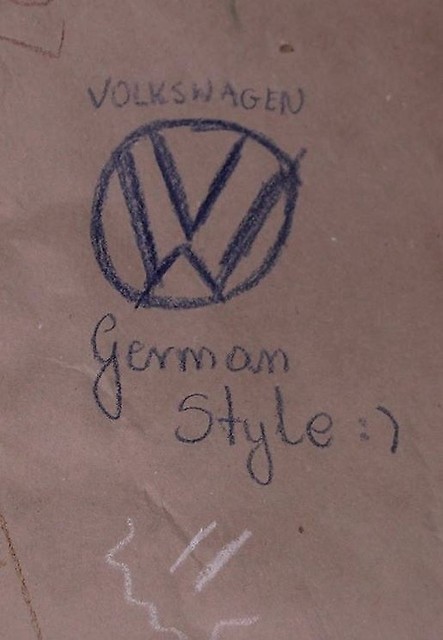 VOLKSWAGEN
VW
German
Style :)